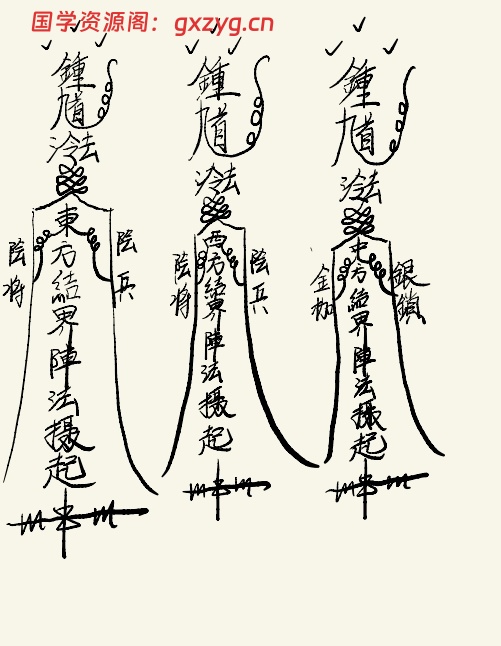 国学资源阁：gxzyg.cn
鍾馗
冷法
東方結界陣法摄起
陰将
陰兵
鍾馗
冷法
西方結界陣法摄起
陰将
陰兵
鍾馗
冷法
中方結界陣法摄起
金枷
銀鎖